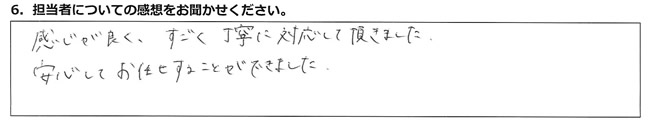 6. 担当者についての感想をお聞かせください。
感じが良く、すごく丁寧に対応して頂きました.
安心してお任せすることができました.